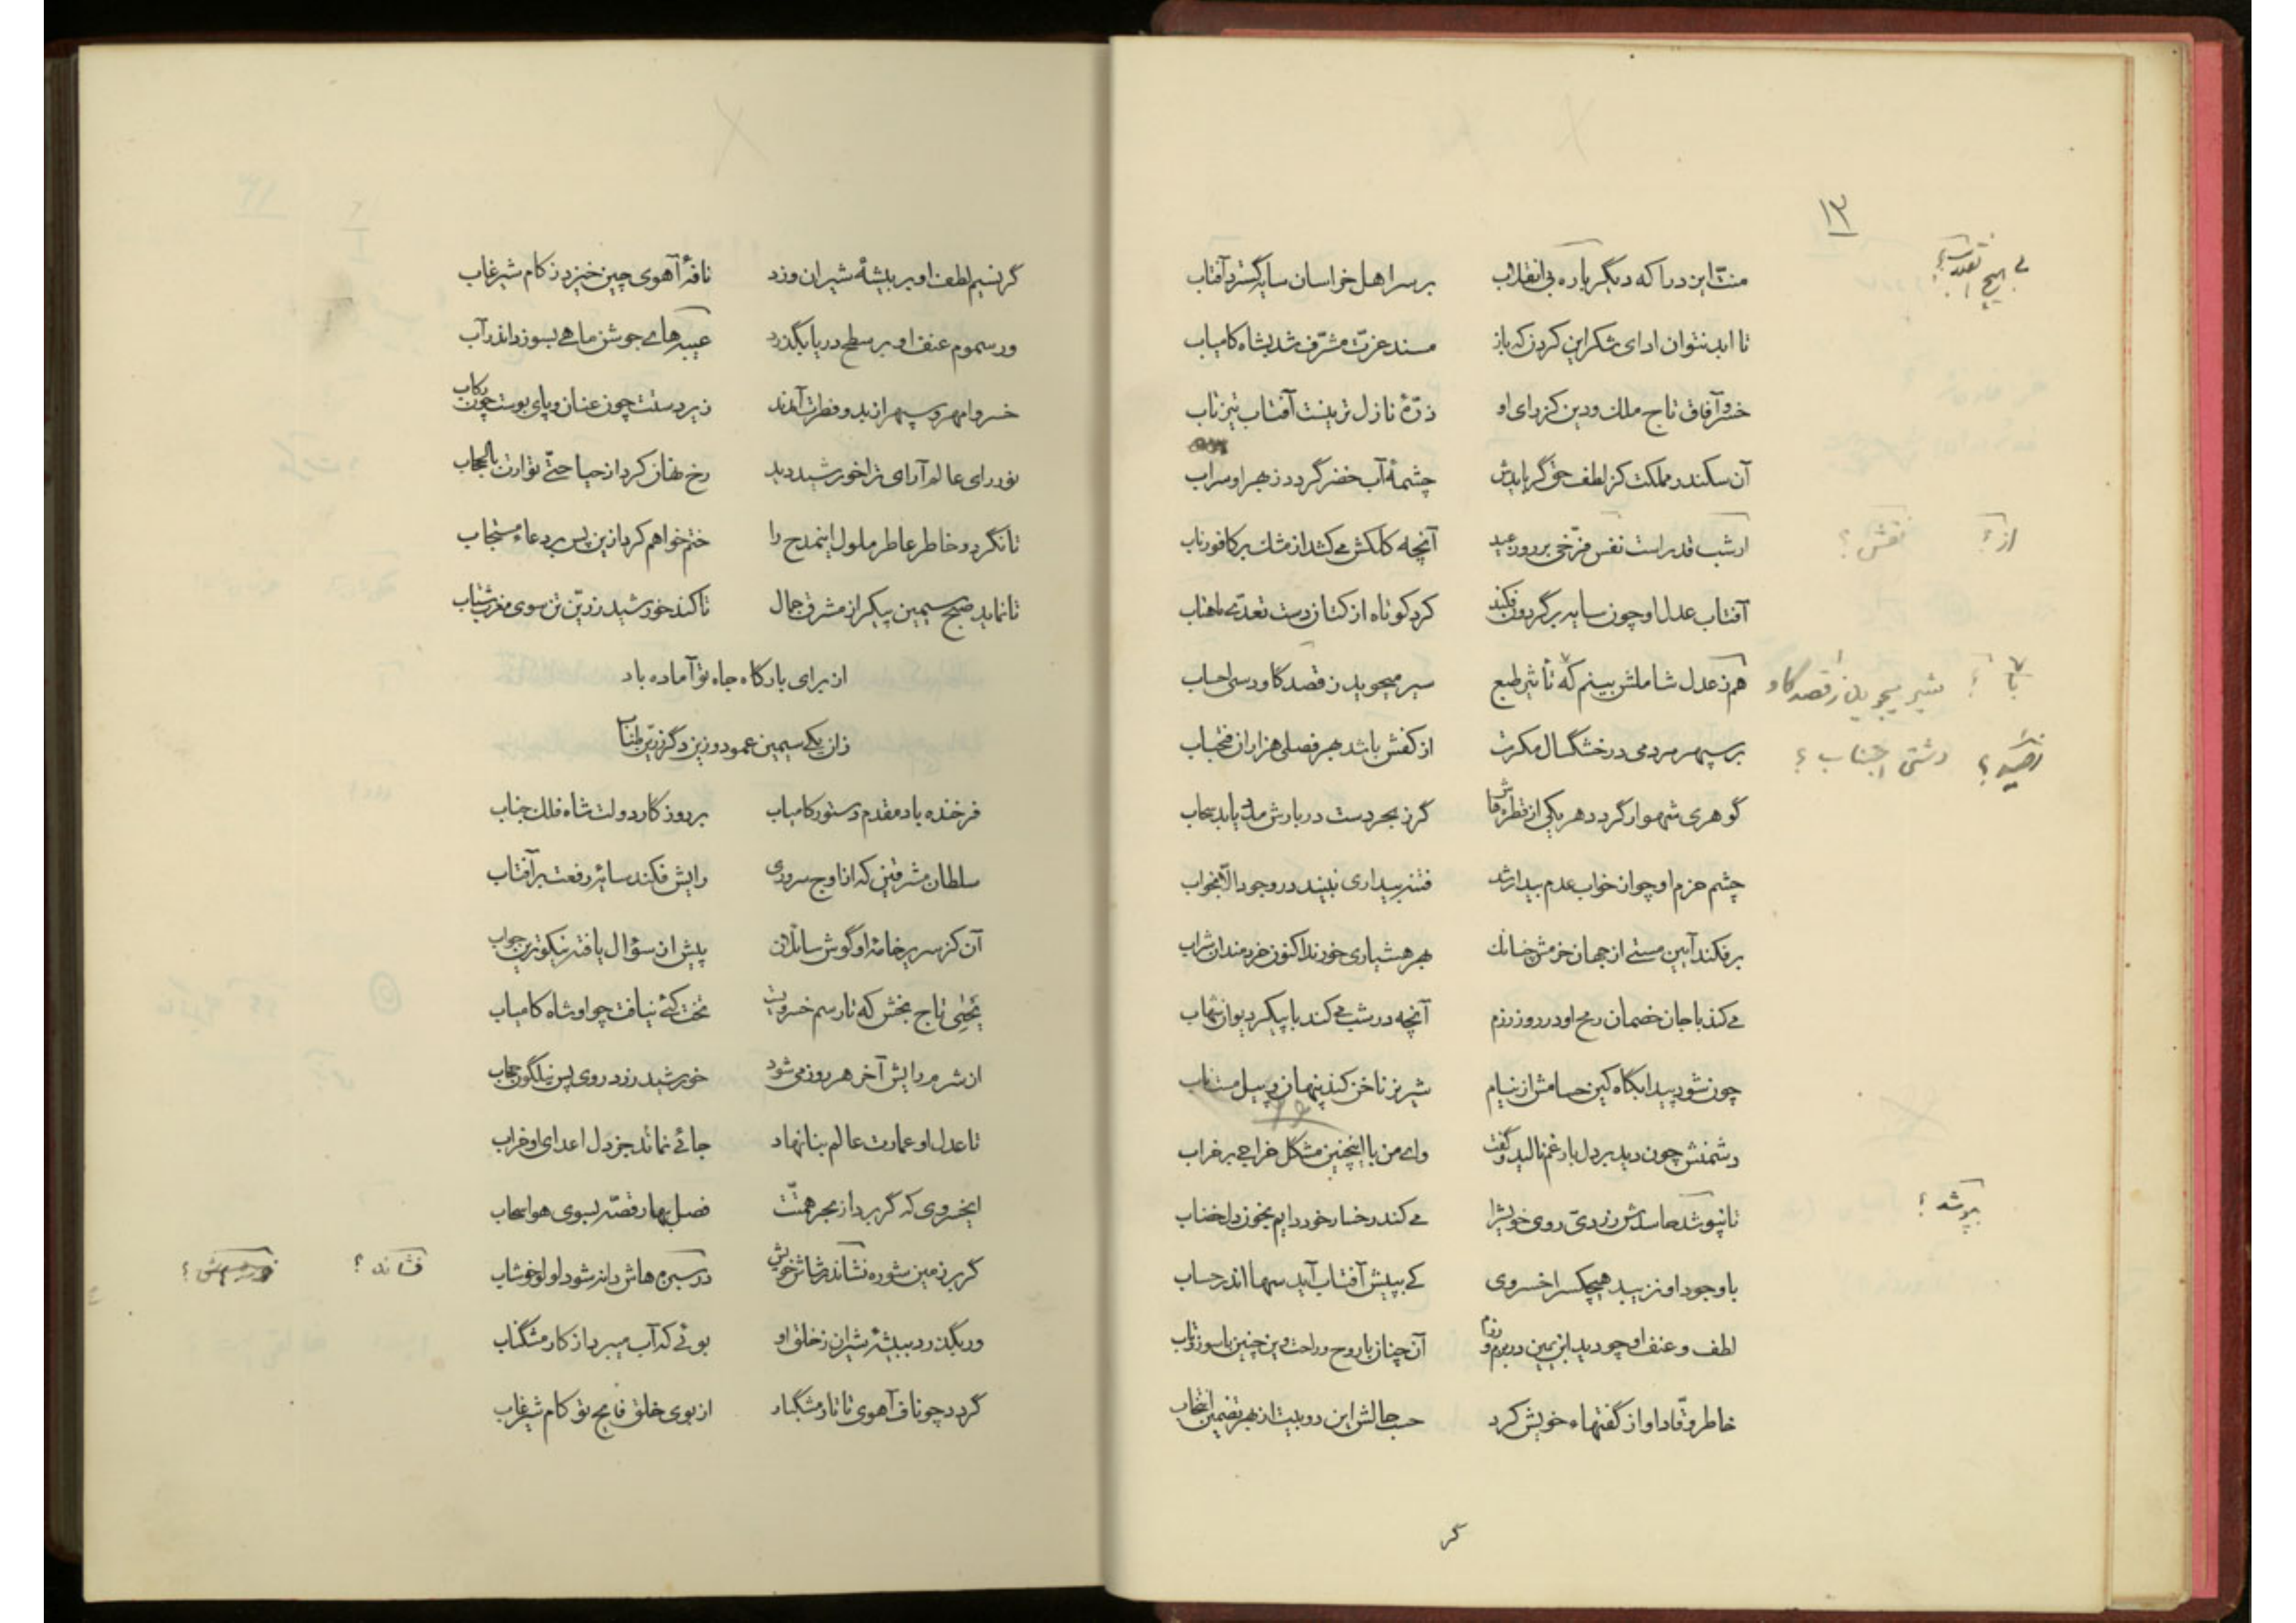 ۱۳
منّت ایزد را که دیگر باره بی انقلاب بر سر اهل خراسان سایه گسترد آفتاب
تا ابد نتوان ادای شکر این کردن که باز مسند عزّت مشرّف شد بشاه کامیاب
خسرو آفاق تاج ملک و دین کز رای او ذرّهٔ نازل تر بینت آفتاب تیز تاب
آن سکندر مملکت کز لطف حق گر بایدش چشمهٔ آب خضر گردد ز بهر او سراب
از شب قدر است نفس فرّخی بر روز عید آنچه کلکش می کشد از مشک بر کافور ناب
آفتاب عدل او چون سایه بر گردون فکند کرد کوتاه از کتان دست تعدّی ماهتاب
هم ز عدل شاملش بینم که تأثیر طبع سیر میجوید ز قصد گاو درسی احساب
بر سپهر مردمی در خشگسال مکرمت از کفش باشد بهر فصلی هزاران فتحباب
گوهری شهوار گردد هر یکی از قطرهاش گر ز بحر دست دربارش مدد یابد سحاب
چشم حزم او چو از خواب عدم بیدار شد فتنه بیداری نبیند در وجود الّا بخواب
بر فکند آیین مستی از جهان حزمش چنانک بهر هشیاری خورند اکنون خردمندان شراب
می کند با جان خصمان رمح او در روز رزم آنچه در شب می کند با پیکر دیوان شهاب
چون شود پیدا بگاه کین حسامش از نیام شیر نر ناخن کند پنهان و پیل مست ناب
دشمنش چون دید بر دل بار غم نالید و گفت وای من با اینچنین مشگل خراجی بر خراب
تا نپوشد حاسدش زردیّ روی خویش را می کند رخسار خود دایم بخون دل خضاب
با وجود او نزیبد هیچکس را خسروی کی بپیش آفتاب آید سها اندر حساب
لطف و عنف او چو دید ابن یمین در بزم و رزم آن چنان با روح و راحت وین چنین با سوز و تاب
خاطر وقّاد او از گفتهاء خویش کرد حسب حالش این دو بیت از بهر تضمین انتخاب
گر
از ؟ نقش ؟
با ؟ شیر میجوید از قصد گاو
دشتی اجناب ؟
بپوشد ؟
گر نسیم لطف او بر بیشهٔ شیران وزد نافهٔ آهوی چین خیزد ز کام شیر غاب
ور سموم عنف او بر سطح دریا بگذرد عیبه های جوشن ماهی بسوزد اندر آب
خسروا مهر و سپهر از بدو فطرت آمدند زیر دستت چون عنان و پای بوست چون رکاب
نور رای عالم آرای ترا خورشید دید رخ نهان کرد از حیا حتّی توارت بالحجاب
تا نگردد خاطر عاطر ملول اینمدح را ختم خواهم کرد ازین پس بر دعاء مستجاب
تا نماید صبح سیمین پیکر از مشرق جمال تا کند خورشید زرّین تن سوی مغرب شتاب
از برای بارگاه جاه تو آماده باد
زان یکی سیمین عمود و زین دگر زرّین طناب
فرخنده باد مقدم دستور کامیاب بر روزگار دولت شاه فلک جناب
سلطان مشرقین که از اوج سروری رایش فکند سایهٔ رفعت بر آفتاب
آن کز سریر خامهٔ او گوش سائلان پیش از سؤال یافته نیکوترین جواب
یحیی تاج بخش که تا رسم خسرویست تخت کئی نیافت چو او شاه کامیاب
از شرم رایش آخر هر روز می شود خورشید زرد روی پس نیلگون حجاب
تا عدل او عمارت عالم بنا نهاد جائی نماند جز دل اعدای او خراب
ایخسروی که گر برد از بحر همّتت فصل بهار قصّه بسوی هوا سحاب
گر بر زمین شوره نشاند رشاش خویش در سبزه هاش دانه شود لولو خوشاب
ور بگذرد ببیشهٔ شیران ز خلق او بوئی که آب میبرد از کار مشگ ناب
گردد چو ناف آهوی تاتار مشگبار از بوی خلق فایح تو کام شیر غاب
فشاند ؟